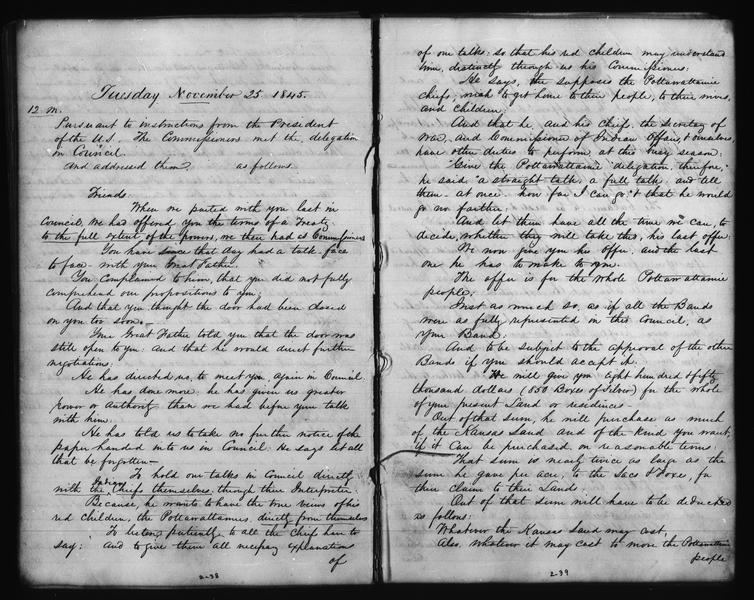 Tuesday November 25 1845.
12 m.
Pursuant to instructions from the President
of the U.S. The Commissioners met the delegation
in Council.
and addressed them, as follows
Friends.
When we parted with you last in
Council, We had offered you the terms of a Treaty
to the full extent of the powers, we then had as Commissioners
You have since that day had a talk face
to face with your Great Father.
You complained to him, that you did not fully
comprehend our propositions to you;
And that you thought the door had been closed
on you too soon.
Your Great Father told you that the door was
still open to you: And that he would direct further
negotiations.
He has directed us, to meet you again in Council.
He has done more; he has given us greater
Power or Authority than we had before your talk
with him.
He has told us to take no further notice of the
paper handed in to us in Council. He says let all
that be forgotten—
To hold our talks in Council directly
with the Indian Chiefs themselves, through their Interpreter.
Because, he wants to have the true views of his
red children, the Pottawattamies, directly from themselves
To listen patiently to all the Chiefs have to
say: And to give them all necessary explanations
of
2-38
of our talks: so that his red children may understand
him, distinctly through us his Commissioners:
He says, he supposes the Pottawattamie
chiefs, wish to get home to their people, to their wives,
and children.
And that he, and his chiefs, the Secretary of
War, and Commissioner of Indian Affairs, & ourselves,
have other duties to perform at this busy season.
Give the Pottawattamie delegation, therefore,
he said a straight talk, a full talk, and tell
them at once how far I can go: & that he would
go no farther.
And let them have all the time we can, to
decide, whether they will take this, his last offer.
We now give you his offer: and the last
one he has to make to you.
The offer is for the whole Pottawattamie
people;
Just as much so, as if all the Bands
were as fully represented in this Council, as
your Band.
And to be subject to the approval of the other
Bands if you should accept it.
He will give you: eight hundred & fifty
thousand dollars (850 Boxes of Silver) for the whole
of your present Land or residences.
Out of that sum, he will purchase as much
of the Kansas land and of the kind you want,
if it can be purchased on reasonable terms.
That sum is nearly twice as large as the
sum he gave per acre, to the Sacs & Foxes, for
their claim to their Lands.
Out of that sum will have to be deducted
as follows:
Whatever the Kansas Land may cost,
Also, whatever it may cost to move the Pottawattamie
people
2-39